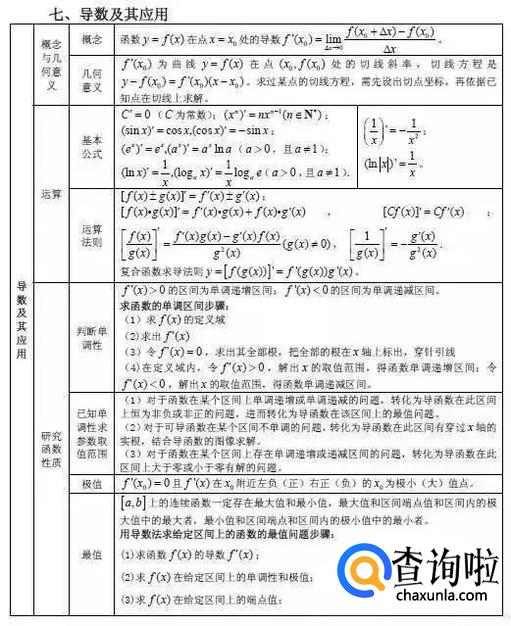 七、导数及其应用
导数及其应用
概念与几何意义
概念
函数 y = f(x) 在点 x = x₀ 处的导数 f'(x₀) = lim(Δx→0) [f(x₀ + Δx) − f(x₀)] / Δx 。
几何意义
f'(x₀) 为曲线 y = f(x) 在点 (x₀, f(x₀)) 处的切线斜率，切线方程是
y − f(x₀) = f'(x₀)(x − x₀)。求过某点的切线方程，需先设出切点坐标，再依据已
知点在切线上求解。
运算
基本公式
C' = 0（C 为常数）；(xⁿ)' = nxⁿ⁻¹(n ∈ N*)；
(sin x)' = cos x, (cos x)' = −sin x；
(eˣ)' = eˣ, (aˣ)' = aˣ ln a（a > 0，且 a ≠ 1）；
(ln x)' = 1/x, (logₐ x)' = (1/x) logₐ e（a > 0，且 a ≠ 1）.
(1/x)' = −1/x²；
(ln|x|)' = 1/x 。
运算法则
[f(x) ± g(x)]' = f'(x) ± g'(x)；
[f(x)•g(x)]' = f'(x)•g(x) + f(x)•g'(x) ， [Cf(x)]' = Cf'(x) ；
[f(x)/g(x)]' = [f'(x)g(x) − g'(x)f(x)] / g²(x) (g(x) ≠ 0)，[1/g(x)]' = −g'(x)/g²(x).
复合函数求导法则 y = [f(g(x))]' = f'(g(x))g'(x)。
研究函数性质
判断单调性
f'(x) > 0 的区间为单调递增区间；f'(x) < 0 的区间为单调递减区间。
求函数的单调区间步骤：
（1）求 f(x) 的定义域
（2)求出 f'(x)
（3）令 f'(x) = 0，求出其全部根，把全部的根在 x 轴上标出，穿针引线
（4)在定义域内，令 f'(x) > 0，解出 x 的取值范围，得函数单调递增区间；令
f'(x) < 0，解出 x 的取值范围，得函数单调递减区间。
已知单调性求参数取值范围
（1）对于函数在某个区间上单调递增或单调递减的问题，转化为导函数在此区间
上恒为非负或非正的问题，进而转化为导函数在该区间上的最值问题。
（2）对于可导函数在某个区间不单调的问题，转化为导函数在此区间有穿过 x 轴的
实根，结合导函数的图像求解。
（3）对于函数在某个区间上存在单调递增或递减区间的问题，转化为导函数在此
区间上大于零或小于零有解的问题。
极值
f'(x₀) = 0 且 f'(x) 在 x₀ 附近左负（正）右正（负）的 x₀ 为极小（大）值点。
最值
[a, b] 上的连续函数一定存在最大值和最小值，最大值和区间端点值和区间内的极
大值中的最大者，最小值和区间端点和区间内的极小值中的最小者。
用导数法求给定区间上的函数的最值问题步骤：
(1)求函数 f(x) 的导数 f'(x)；
(2)求 f(x) 在给定区间上的单调性和极值；
(3)求 f(x) 在给定区间上的端点值；
查询啦
chaxunla.com